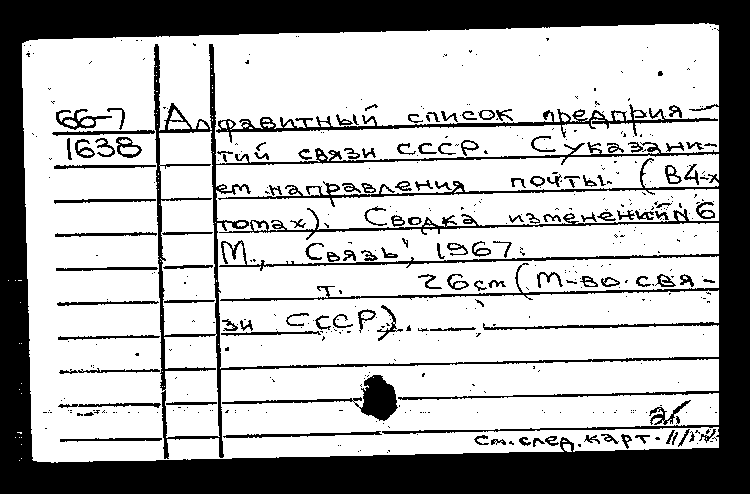 66-7 Алфавитный список предприя-
1638 тий связи СССР. С указани-
ем направления почты. (В 4-х
томах). Сводка изменений N 6
М., „Связь", 1967.
т. 26 cm (М-во свя-
зи СССР).
см. след. карт.